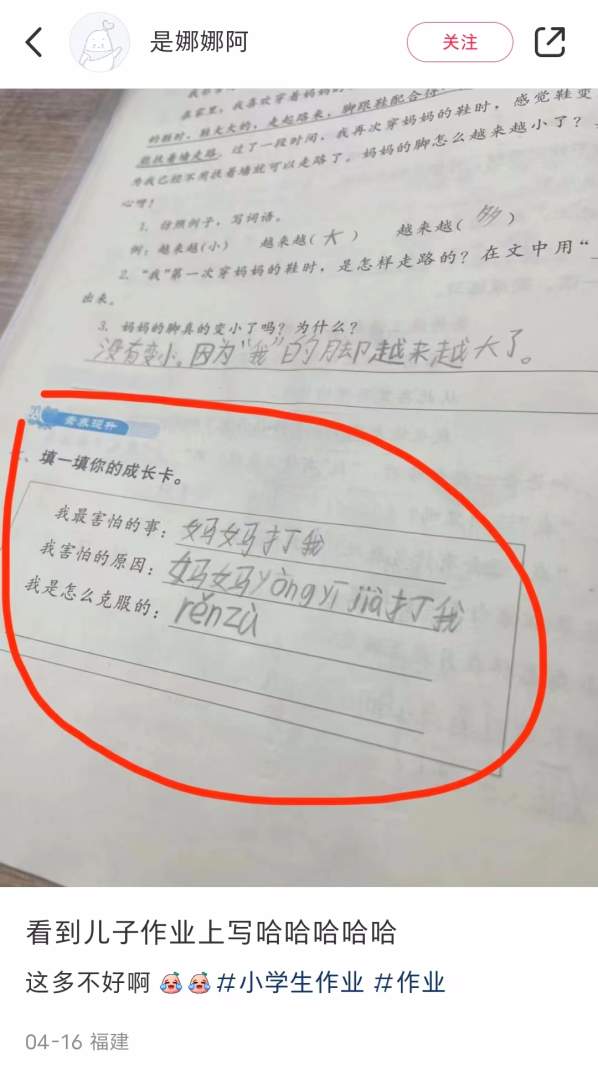 是娜娜阿
关注
在家里，我喜欢穿着妈妈
的鞋时，鞋大大的，走起路来，脚跟鞋配合得
能扶着墙走路。过了一段时间，我再次穿妈妈的鞋时，感觉鞋变
为我已经不用扶着墙就可以走路了。妈妈的脚怎么越来越小了？
心呀！
1. 仿照例子，写词语。
例：越来越(小) 越来越(大) 越来越(多)
2. “我”第一次穿妈妈的鞋时，是怎样走路的？在文中用“
出来。
3. 妈妈的脚真的变小了吗？为什么？
没有变小，因为“我”的脚越来越大了。
素养提升
一、填一填你的成长卡。
我最害怕的事：妈妈打我
我害怕的原因：妈妈yòng yī jià打我
我是怎么克服的：rěnzù
看到儿子作业上写哈哈哈哈哈
这多不好啊 #小学生作业 #作业
04-16 福建